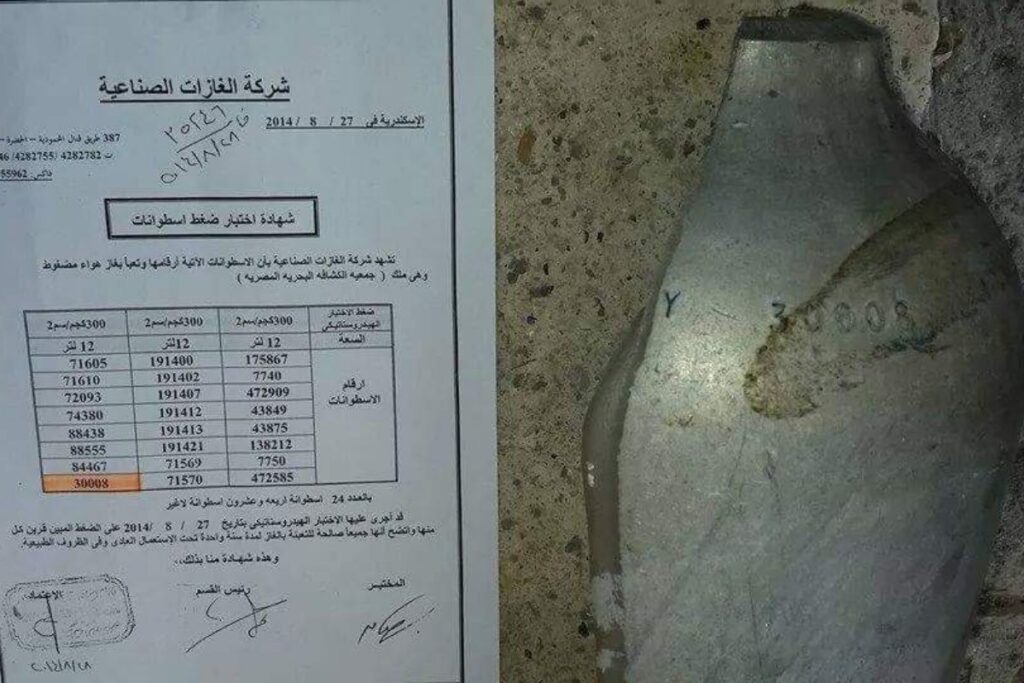 شركة الغازات الصناعية
الإسكندرية في 27 / 8 / 2014
٢٠١٤/٨/٢٨
387 طريق قنال المحمودية – الحضرة –
ت 4282782 /4282755
فاكس 55962
شهادة اختبار ضغط اسطوانات
تشهد شركة الغازات الصناعية بأن الاسطوانات الآتية أرقامها وتعبأ بغاز هواء مضغوط
وهى ملك ( جمعيه الكشافه البحريه المصريه )
ضغط الاختبار الهيدروستاتيكي 300كجم/سم2 300كجم/سم2 300كجم/سم2
السعة 12 لتر 12لتر 12 لتر
ارقام الاسطوانات
175867 191400 71605
7740 191402 71610
472909 191407 72093
43849 191412 74380
43875 191413 88438
138212 191421 88555
7750 71569 84467
472585 71570 30008
بالعدد 24 اسطوانة اربعه وعشرون اسطوانة لاغير
قد أجرى عليها الاختبار الهيدروستاتيكي بتاريخ 27 / 8 /2014 على الضغط المبين قرين كل
منها واتضح أنها جميعاً صالحة للتعبئة بالغاز لمدة سنة واحدة تحت الإستعمال العادى وفى الظروف الطبيعية.
وهذه شهادة منا بذلك،،
المختبر رئيس القسم الاعتماد
٢٠١٤/٨/٢٨
Y 30008